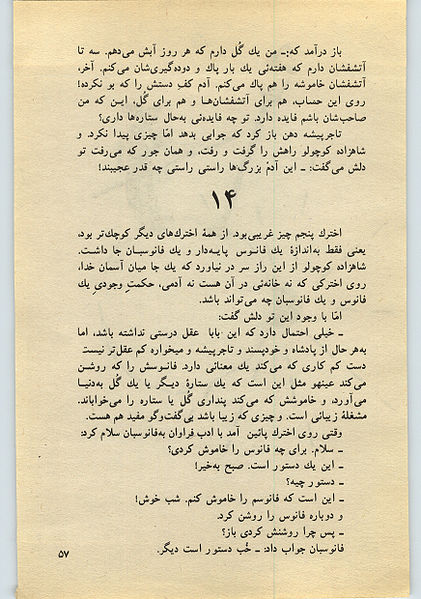 باز درآمد که:ـ من یك گُل دارم که هر روز آبش می‌دهم. سه تا
آتشفشان دارم که هفته‌ئی یك بار پاك و دوده‌گیری‌شان می‌کنم. آخر،
آتشفشان خاموشه را هم پاك می‌کنم. آدم کفِ دستش را که بو نکرده!
روی این حساب، هم برای آتشفشان‌هـا و هم برای گُل، ایـن که من
صاحب‌شان باشم فایده دارد. تو چه فایده‌ئی به‌حالِ ستاره‌ها داری؟
تاجرپیشه دهن باز کرد که جوابی بدهد امّا چیزی پیدا نکرد. و
شاهزاده کوچولو راهش را گرفت و رفت، و همان جور که می‌رفت تو
دلش می‌گفت: ـ این آدمْ بزرگ‌ها راستی راستی چه قدر عجیبند!
۱۴
اخترك پنجم چیز غریبی‌بود. از همهٔ اخترك‌های دیگر کوچك‌تر بود،
یعنی فقط به‌اندازهٔ یك فانـوس پایـه‌دار و یك فانـوسبان جا داشـت.
شاهزاده کوچولو از این راز سر در نیاورد که یك جا میان آسمان خدا،
روی اخترکی که نه خانه‌ئی در آن هست نه آدمی، حکمتِ وجودیِ یك
فانوس و یك فانوسبان چه می‌تواند باشد.
امّا با وجود این تو دلش گفت:
ـ خیلی احتمال دارد که این بابا عقل درستی نداشته باشد، اما
به‌هر حال از پادشاه و خودپسند و تاجرپیشه و میخواره کم عقل‌تر نیست
دست کم کاری که می‌کند یك معنائی دارد. فانـوسش را که روشـن
می‌کند عینهو مثل این است که یك ستارهٔ دیگر یا یك گُل به‌دنیـا
می‌آورد، و خاموشش که می‌کند پنداری گُل یا ستاره را می‌خواباند.
مشغلهٔ زیبائی است. و چیزی که زیبا باشد بی‌گفت‌وگو مفید هم هست.
وقتی روی اخترك پائین آمد با ادب فراوان به‌فانوسبان سلام کرد:
ـ سلام. برای چه فانوس را خاموش کردی؟
ـ این یك دستور است. صبح به‌خیر!
ـ دستور چیه؟
ـ این است که فانوسم را خاموش کنم. شب خوش!
و دوباره فانوس را روشن کرد.
ـ پس چرا روشنش کردی باز؟
فانوسبان جواب داد: ـ خُب دستور است دیگر.
۵۷